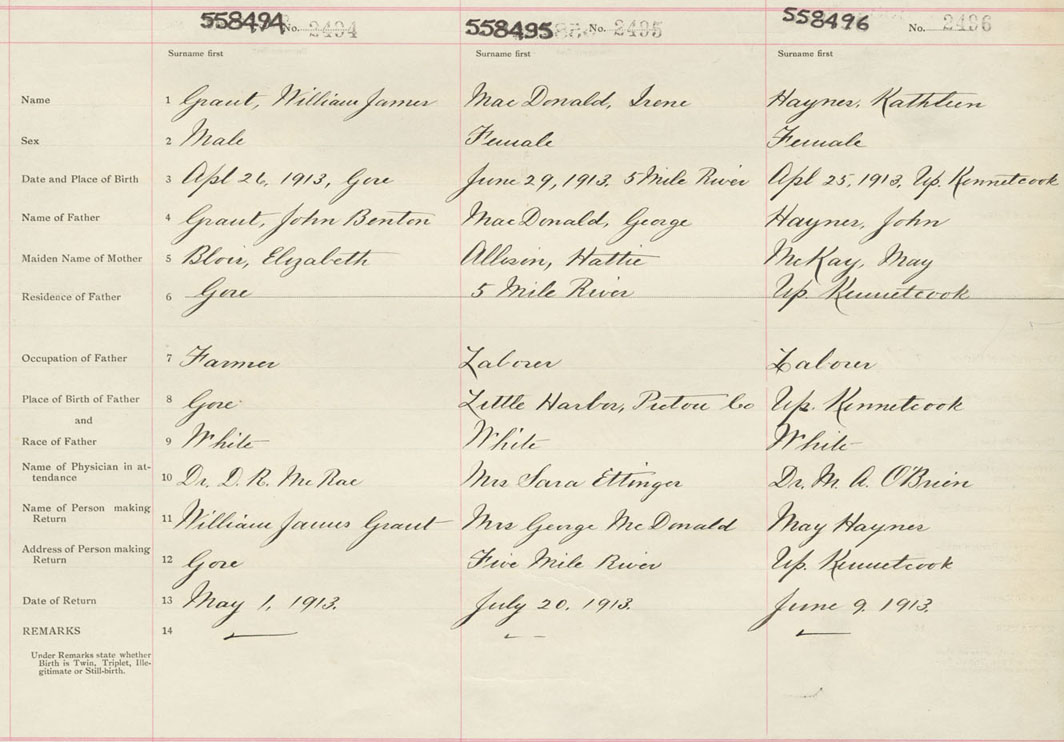 558494 No. 2494 558495 No. 2495 558496 No. 2496
Surname first Surname first Surname first
Name 1 Grant, William James MacDonald, Irene Haynes, Kathleen
Sex 2 Male Female Female
Date and Place of Birth 3 Apl 26, 1913, Gore June 29, 1913. 5 Mile River Apl 25, 1913, Up. Kennetcook
Name of Father 4 Grant, John Benton MacDonald, George Haynes, John
Maiden Name of Mother 5 Blois, Elizabeth Allison, Hattie McKay, May
Residence of Father 6 Gore 5 Mile River Up. Kennetcook
Occupation of Father 7 Farmer Laborer Laborer
Place of Birth of Father 8 Gore Little Harbor, Pictou Co Up. Kennetcook
and
Race of Father 9 White White White
Name of Physician in at-
tendance 10 Dr. D. R. McRae Mrs Sara Ettinger Dr. M. A. O'Brien
Name of Person making
Return 11 William James Grant Mrs George McDonald May Haynes
Address of Person making
Return 12 Gore Five Mile River Up. Kennetcook
Date of Return 13 May 1, 1913. July 20, 1913. June 9, 1913.
REMARKS 14
Under Remarks state whether
Birth is Twin, Triplet, Ille-
gitimate or Still-birth.